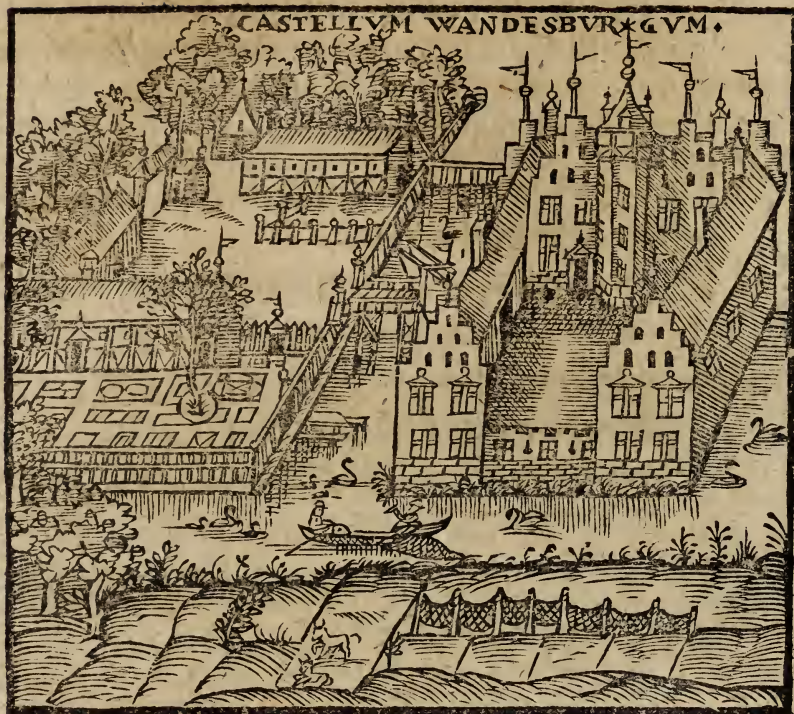 CASTELLVM WANDESBVR*GVM.